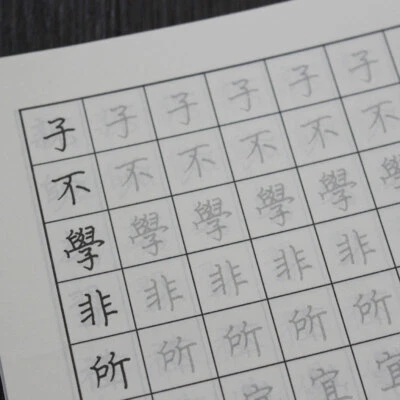 子 子 子 子 子 子
不 不 不 不 不 不
學 學 學 學 學 學
非 非 非 非 非
所 所 所 所 所
宜 宜 宜